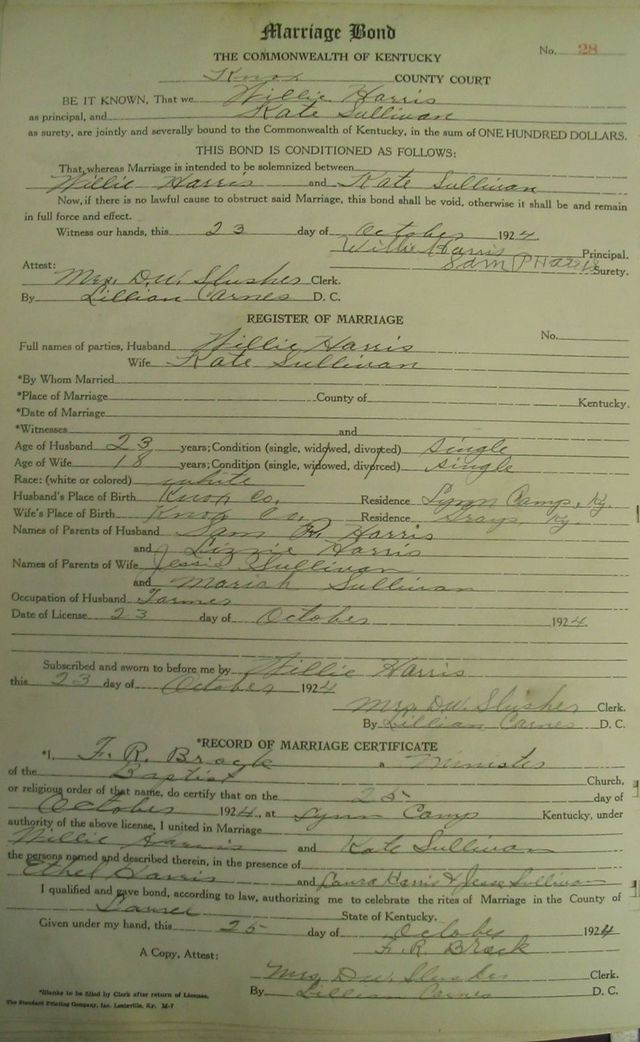 Marriage Bond
THE COMMONWEALTH OF KENTUCKY
No. 28
Knox COUNTY COURT
BE IT KNOWN, That we Willie Harris
as principal, and Kate Sullivan
as surety, are jointly and severally bound to the Commonwealth of Kentucky, in the sum of ONE HUNDRED DOLLARS.
THIS BOND IS CONDITIONED AS FOLLOWS:
That, whereas Marriage is intended to be solemnized between
Willie Harris and Kate Sullivan
Now, if there is no lawful cause to obstruct said Marriage, this bond shall be void, otherwise it shall be and remain
in full force and effect.
Witness our hands, this 23 day of October 1924
Willie Harris Principal.
Sam P Harris Surety.
Attest:
Mrs. D.W. Slusher Clerk.
By Lillian Carnes D. C.
REGISTER OF MARRIAGE
No.
Full names of parties, Husband Willie Harris
Wife Kate Sullivan
*By Whom Married
*Place of Marriage County of Kentucky.
*Date of Marriage
*Witnesses and
Age of Husband 23 years; Condition (single, widowed, divorced) single
Age of Wife 18 years; Condition (single, widowed, divorced) single
Race: (white or colored) white
Husband's Place of Birth Knox Co. Residence Lynn Camp, Ky.
Wife's Place of Birth Knox Co. Residence Grays, Ky.
Names of Parents of Husband Sam Harris
and Lizzie Harris
Names of Parents of Wife Jessie Sullivan
and Mariah Sullivan
Occupation of Husband Farmer
Date of License 23 day of October 1924
Subscribed and sworn to before me by Willie Harris
this 23 day of October 1924
Mrs D.W. Slusher Clerk.
By Lillian Carnes D. C.
*RECORD OF MARRIAGE CERTIFICATE
*I, F. R. Brock a Minister
of the Baptist Church,
or religious order of that name, do certify that on the 25 day of
October 1924, at Lynn Camp Kentucky, under
authority of the above license, I united in Marriage
Willie Harris and Kate Sullivan
the persons named and described therein, in the presence of
Ethel Harris and Laura Harris & Jesse Sullivan
I qualified and gave bond, according to law, authorizing me to celebrate the rites of Marriage in the County of
Laurel State of Kentucky.
Given under my hand, this 25 day of October 1924
F. R. Brock
A Copy, Attest:
Mrs D.W. Slusher Clerk.
By Lillian Carnes D. C.
*Blanks to be filled by Clerk after return of License.
The Standard Printing Company, Inc. Louisville, Ky. M-7